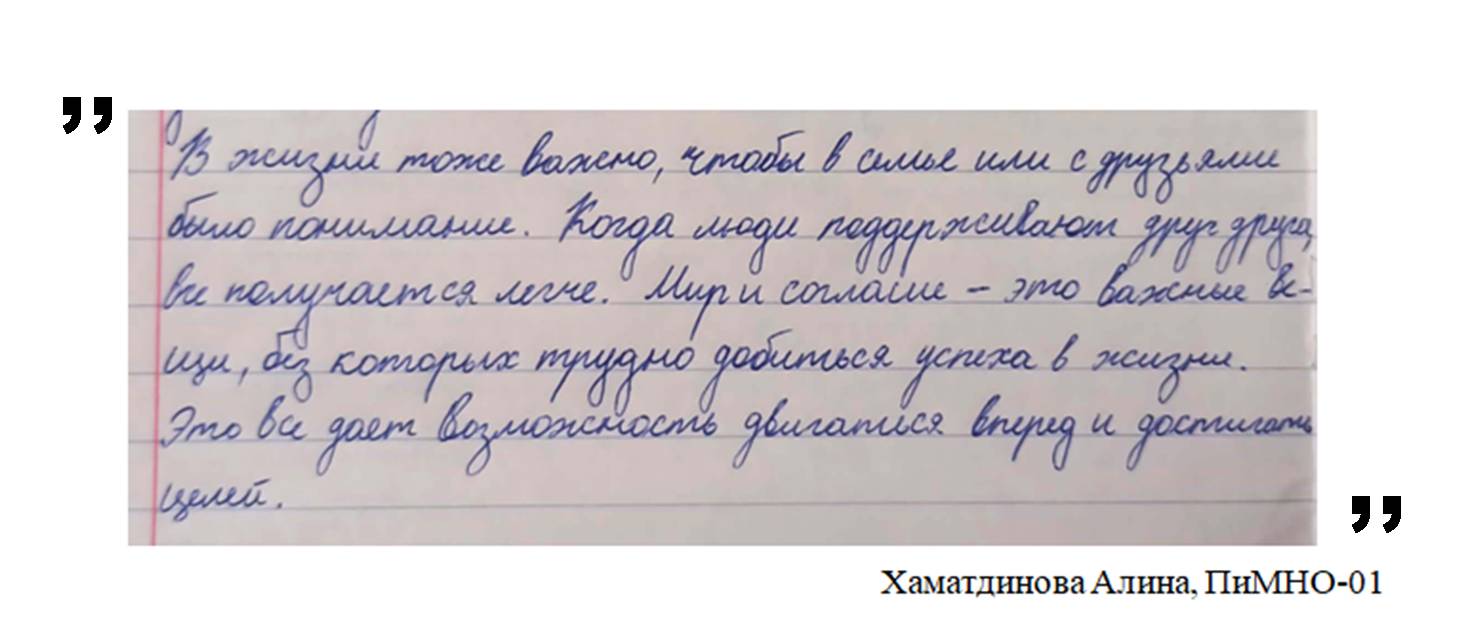 ”
В жизни тоже важно, чтобы в семье или с друзьями
было понимание. Когда люди поддерживают друг друга,
все получается легче. Мир и согласие – это важные ве-
щи, без которых трудно добиться успеха в жизни.
Это все дает возможность двигаться вперед и достигать
целей.
”
Хаматдинова Алина, ПиМНО-01